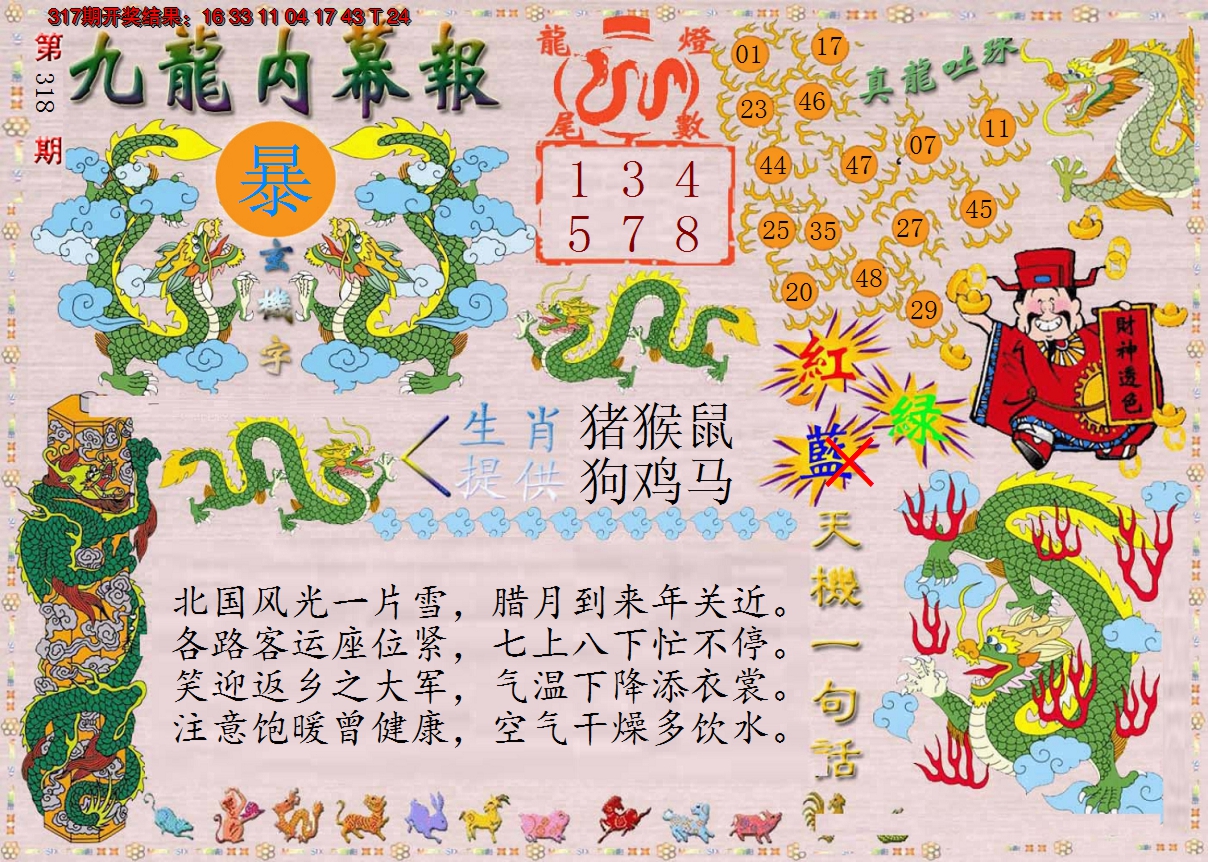 317期开奖结果：16 33 11 04 17 43 T 24
第318期
九龍内幕報
暴
玄機字
龍燈
尾數
1 3 4
5 7 8
真龍吐珠
01 17
23 46
44 47 07 11
25 35 27 45
20 48 29
財神透色
紅
綠
藍
生肖 猪猴鼠
提供 狗鸡马
天機一句話
北国风光一片雪，腊月到来年关近。
各路客运座位紧，七上八下忙不停。
笑迎返乡之大军，气温下降添衣裳。
注意饱暖曾健康，空气干燥多饮水。